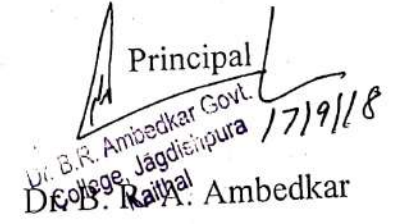 Principal
17/9/18
Dr. B.R. Ambedkar Govt.
College, Jagdishpura
Kaithal
Dr. B. R. A. Ambedkar